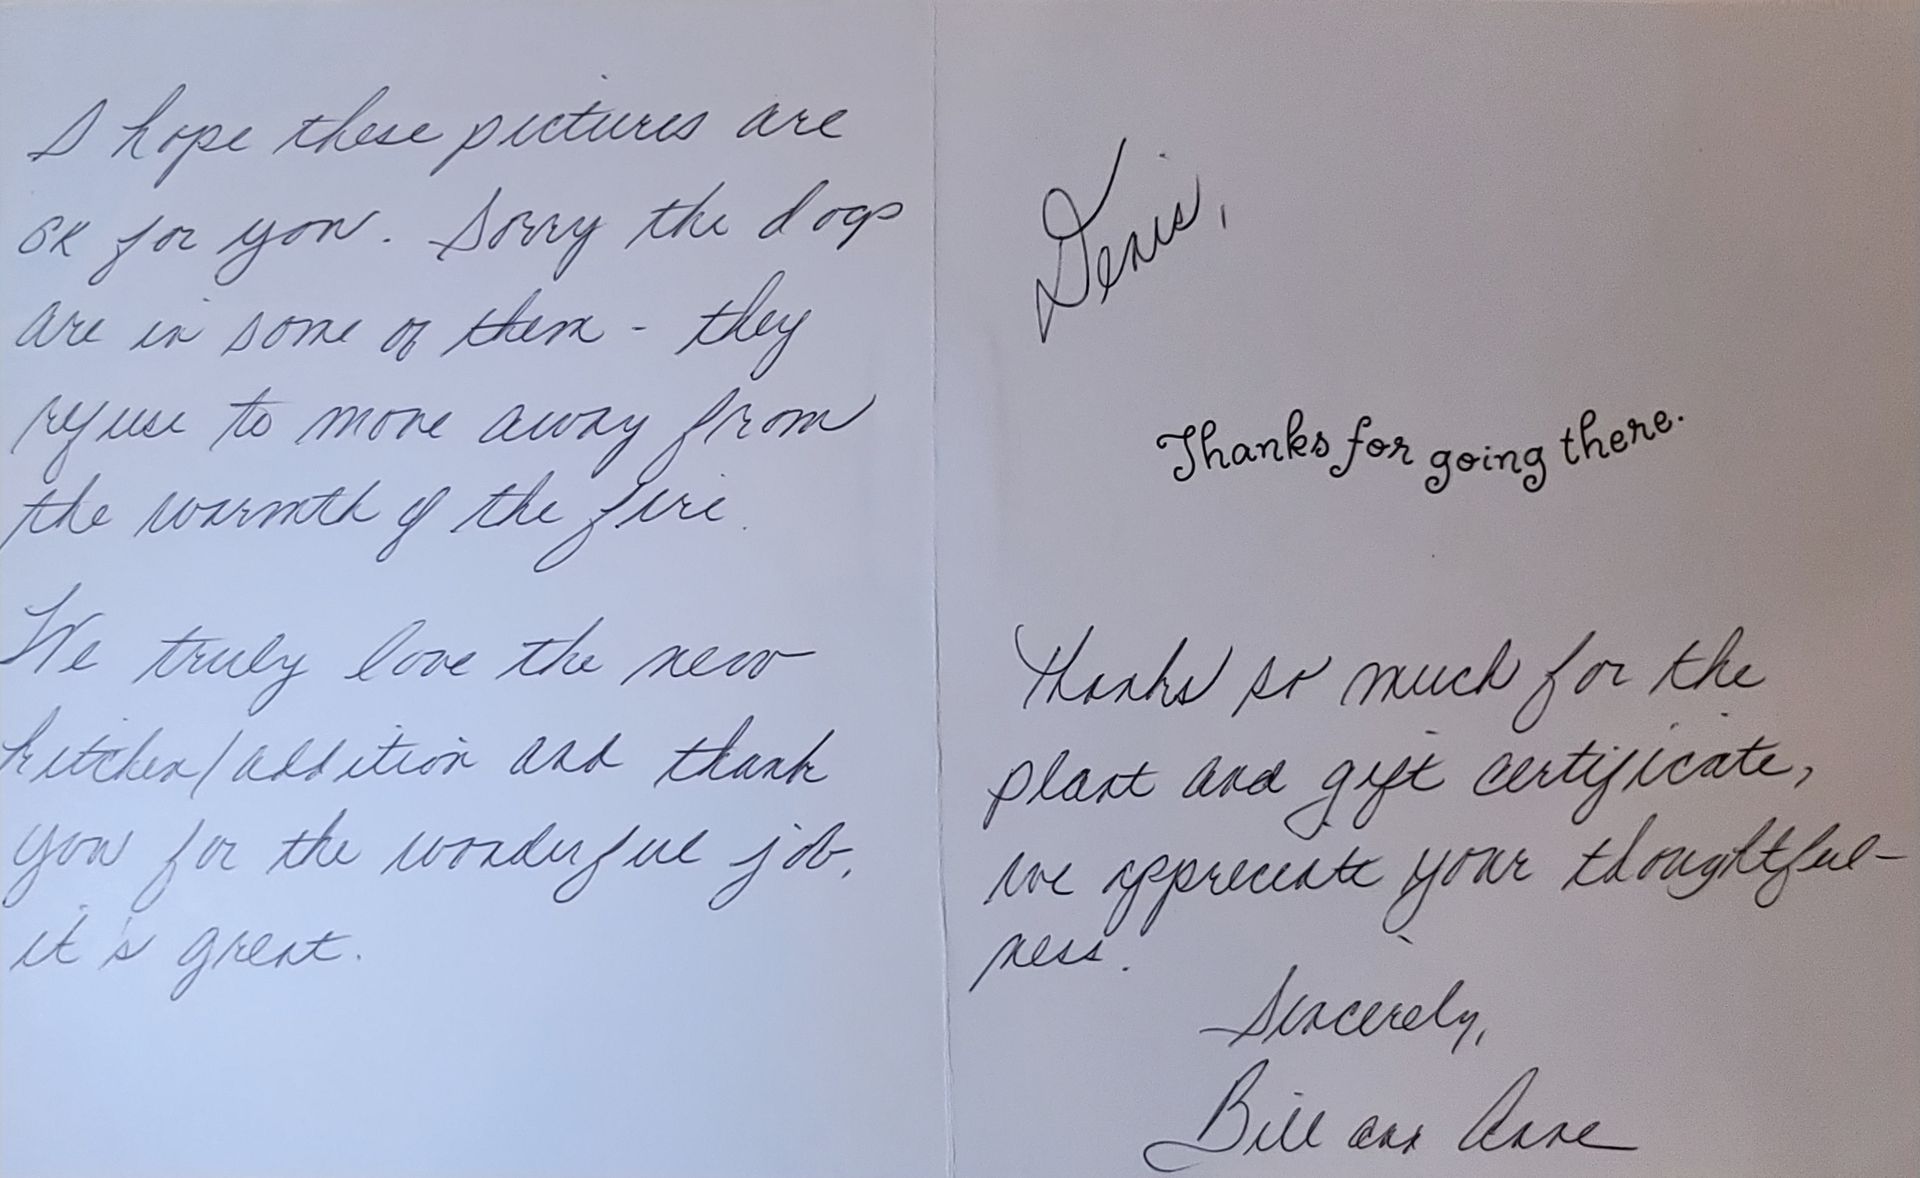 I hope these pictures are
OK for you. Sorry the dogs
are in some of them - they
refuse to move away from
the warmth of the fire.
We truly love the new
kitchen/addition and thank
you for the wonderful job,
it's great.
Denis,
Thanks for going there.
Thanks so much for the
plant and gift certificate,
we appreciate your thoughtful-
ness.
Sincerely,
Bill and Anne